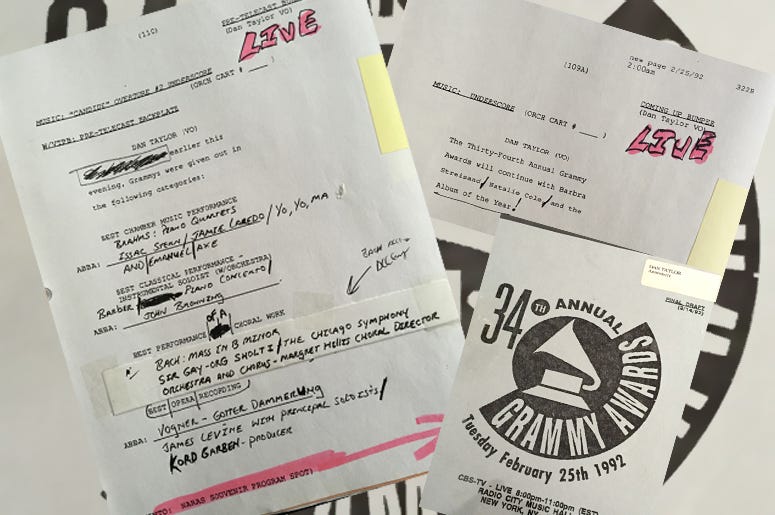 (110)
PRE-TELECAST BUMPER
(Dan Taylor VO)
LIVE
MUSIC: "CANDIDE" OVERTURE #2 UNDERSCORE
(ORCH CART # ___ )
W/VTPB: PRE-TELECAST BACKPLATE
DAN TAYLOR (VO)
earlier this
evening, Grammys were given out in
the following categories:
BEST CHAMBER MUSIC PERFORMANCE
BRAHMS: PIANO QUARTETS
ISSAC STERN / JAMIE LAREDO / YO, YO, MA
ABBA: AND / EMANUEL / AXE
BEST CLASSICAL PERFORMANCE -
INSTRUMENTAL SOLOIST (W/ORCHESTRA)
BARBER PIANO CONCERTO /
ABBA: JOHN BROWNING
BACH
OF A
BEST PERFORMANCE CHORAL WORK
BACH: MASS IN B MINOR
SIR GAY-ORG SHOLTI / THE CHICAGO SYMPHONY
ORCHESTRA AND CHORUS - MARGRET HILLIS CHORAL DIRECTOR
BEST OPERA RECORDING
VOGNER - GOTTER DAMMERUNG
ABBA: JAMES LEVINE WITH PRINCIPAL SOLOISTS /
KORD GARBEN - PRODUCER
INTO: NARAS SOUVENIR PROGRAM SPOT)
(109A)
new page 2/25/92
2:00am
322B
MUSIC: UNDERSCORE (ORCH CART # ___ )
COMING UP BUMPER
(Dan Taylor VO)
LIVE
DAN TAYLOR (VO)
The Thirty-Fourth Annual Grammy
Awards will continue with Barbra
Streisand / Natalie Cole / and the
Album of the Year!
DAN TAYLOR
FINAL DRAFT
34TH ANNUAL
GRAMMY AWARDS
Tuesday February 25th 1992
CBS-TV - LIVE 8:00pm-11:00pm (EST)
RADIO CITY MUSIC HALL
NEW YORK, NY